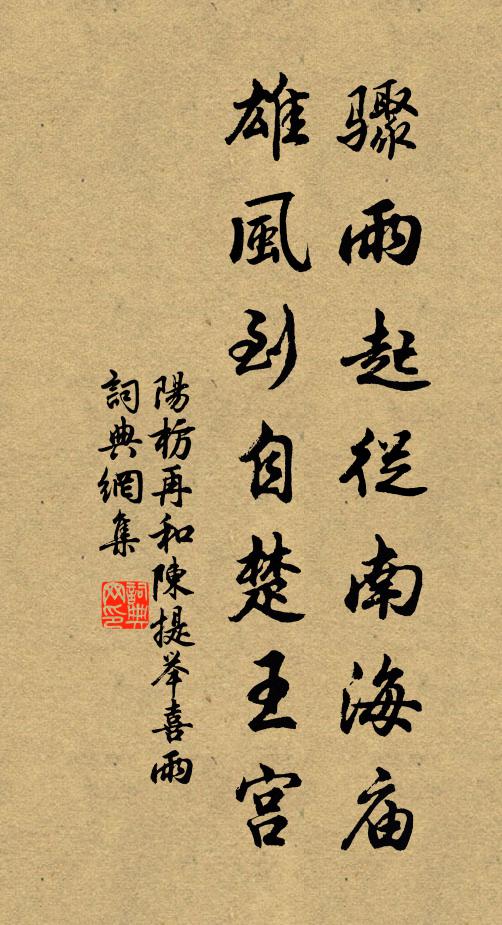 骤雨起從南海庙
雄風到自楚王宫
陽枋再和陳提举喜雨
詞典網集
詞典网印